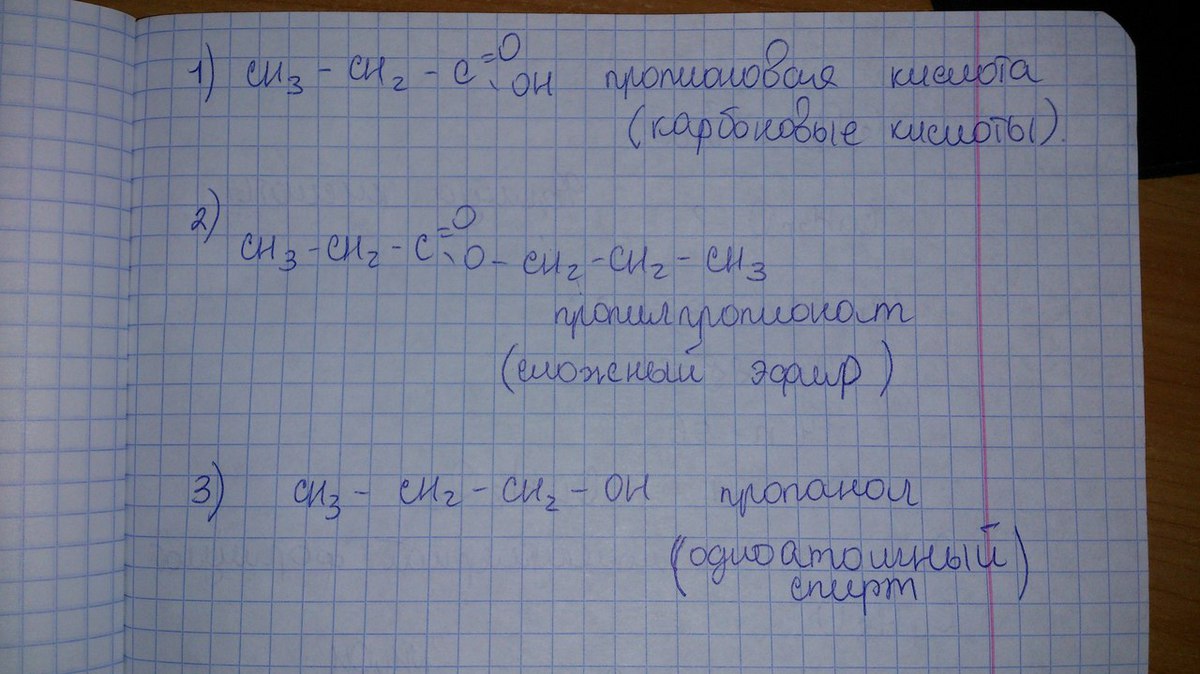 1) CH₃ – CH₂ – C =O OH пропионовая кислота
(карбоновые кислоты).
2) CH₃ – CH₂ – C =O O – CH₂ – CH₂ – CH₃
пропилпропионат
(сложный эфир)
3) CH₃ – CH₂ – CH₂ – OH пропанол
(одноатомный
спирт)